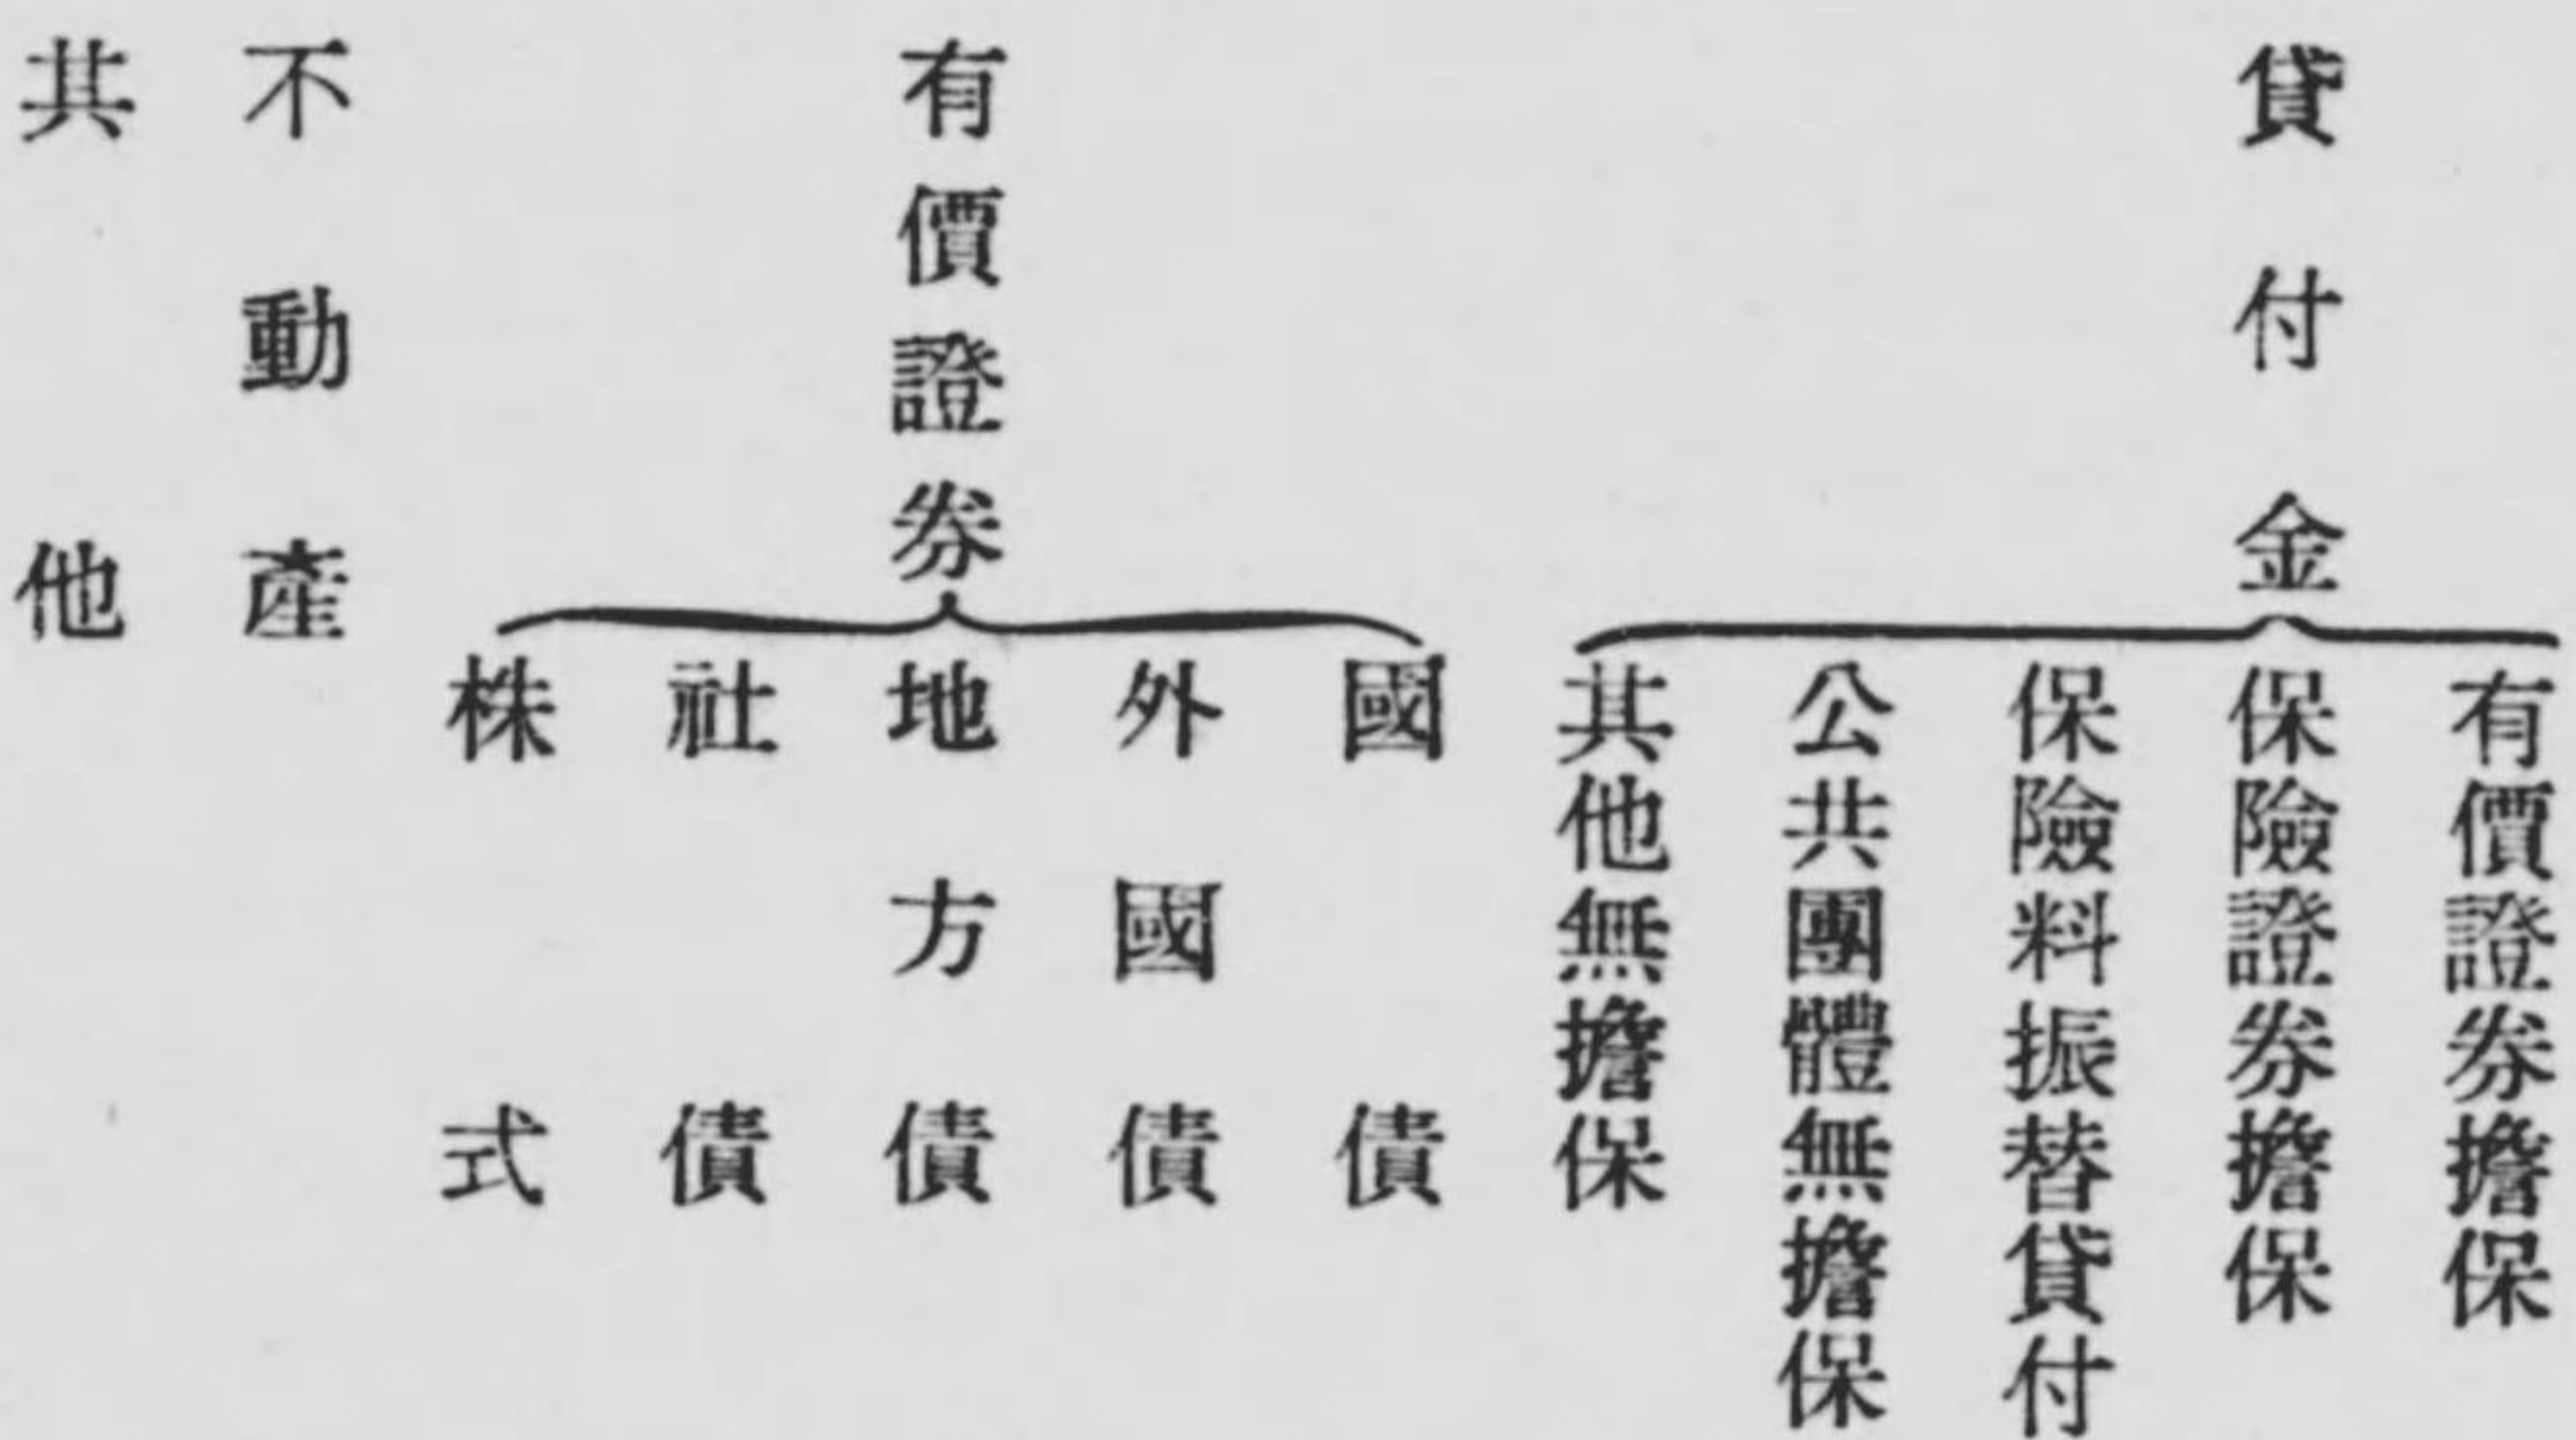 貸付金
有價證券擔保
保險證券擔保
保險料振替貸付
公共團體無擔保
其他無擔保
有價證券
國債
外國債
地方債
社債
株式
不動產
其他